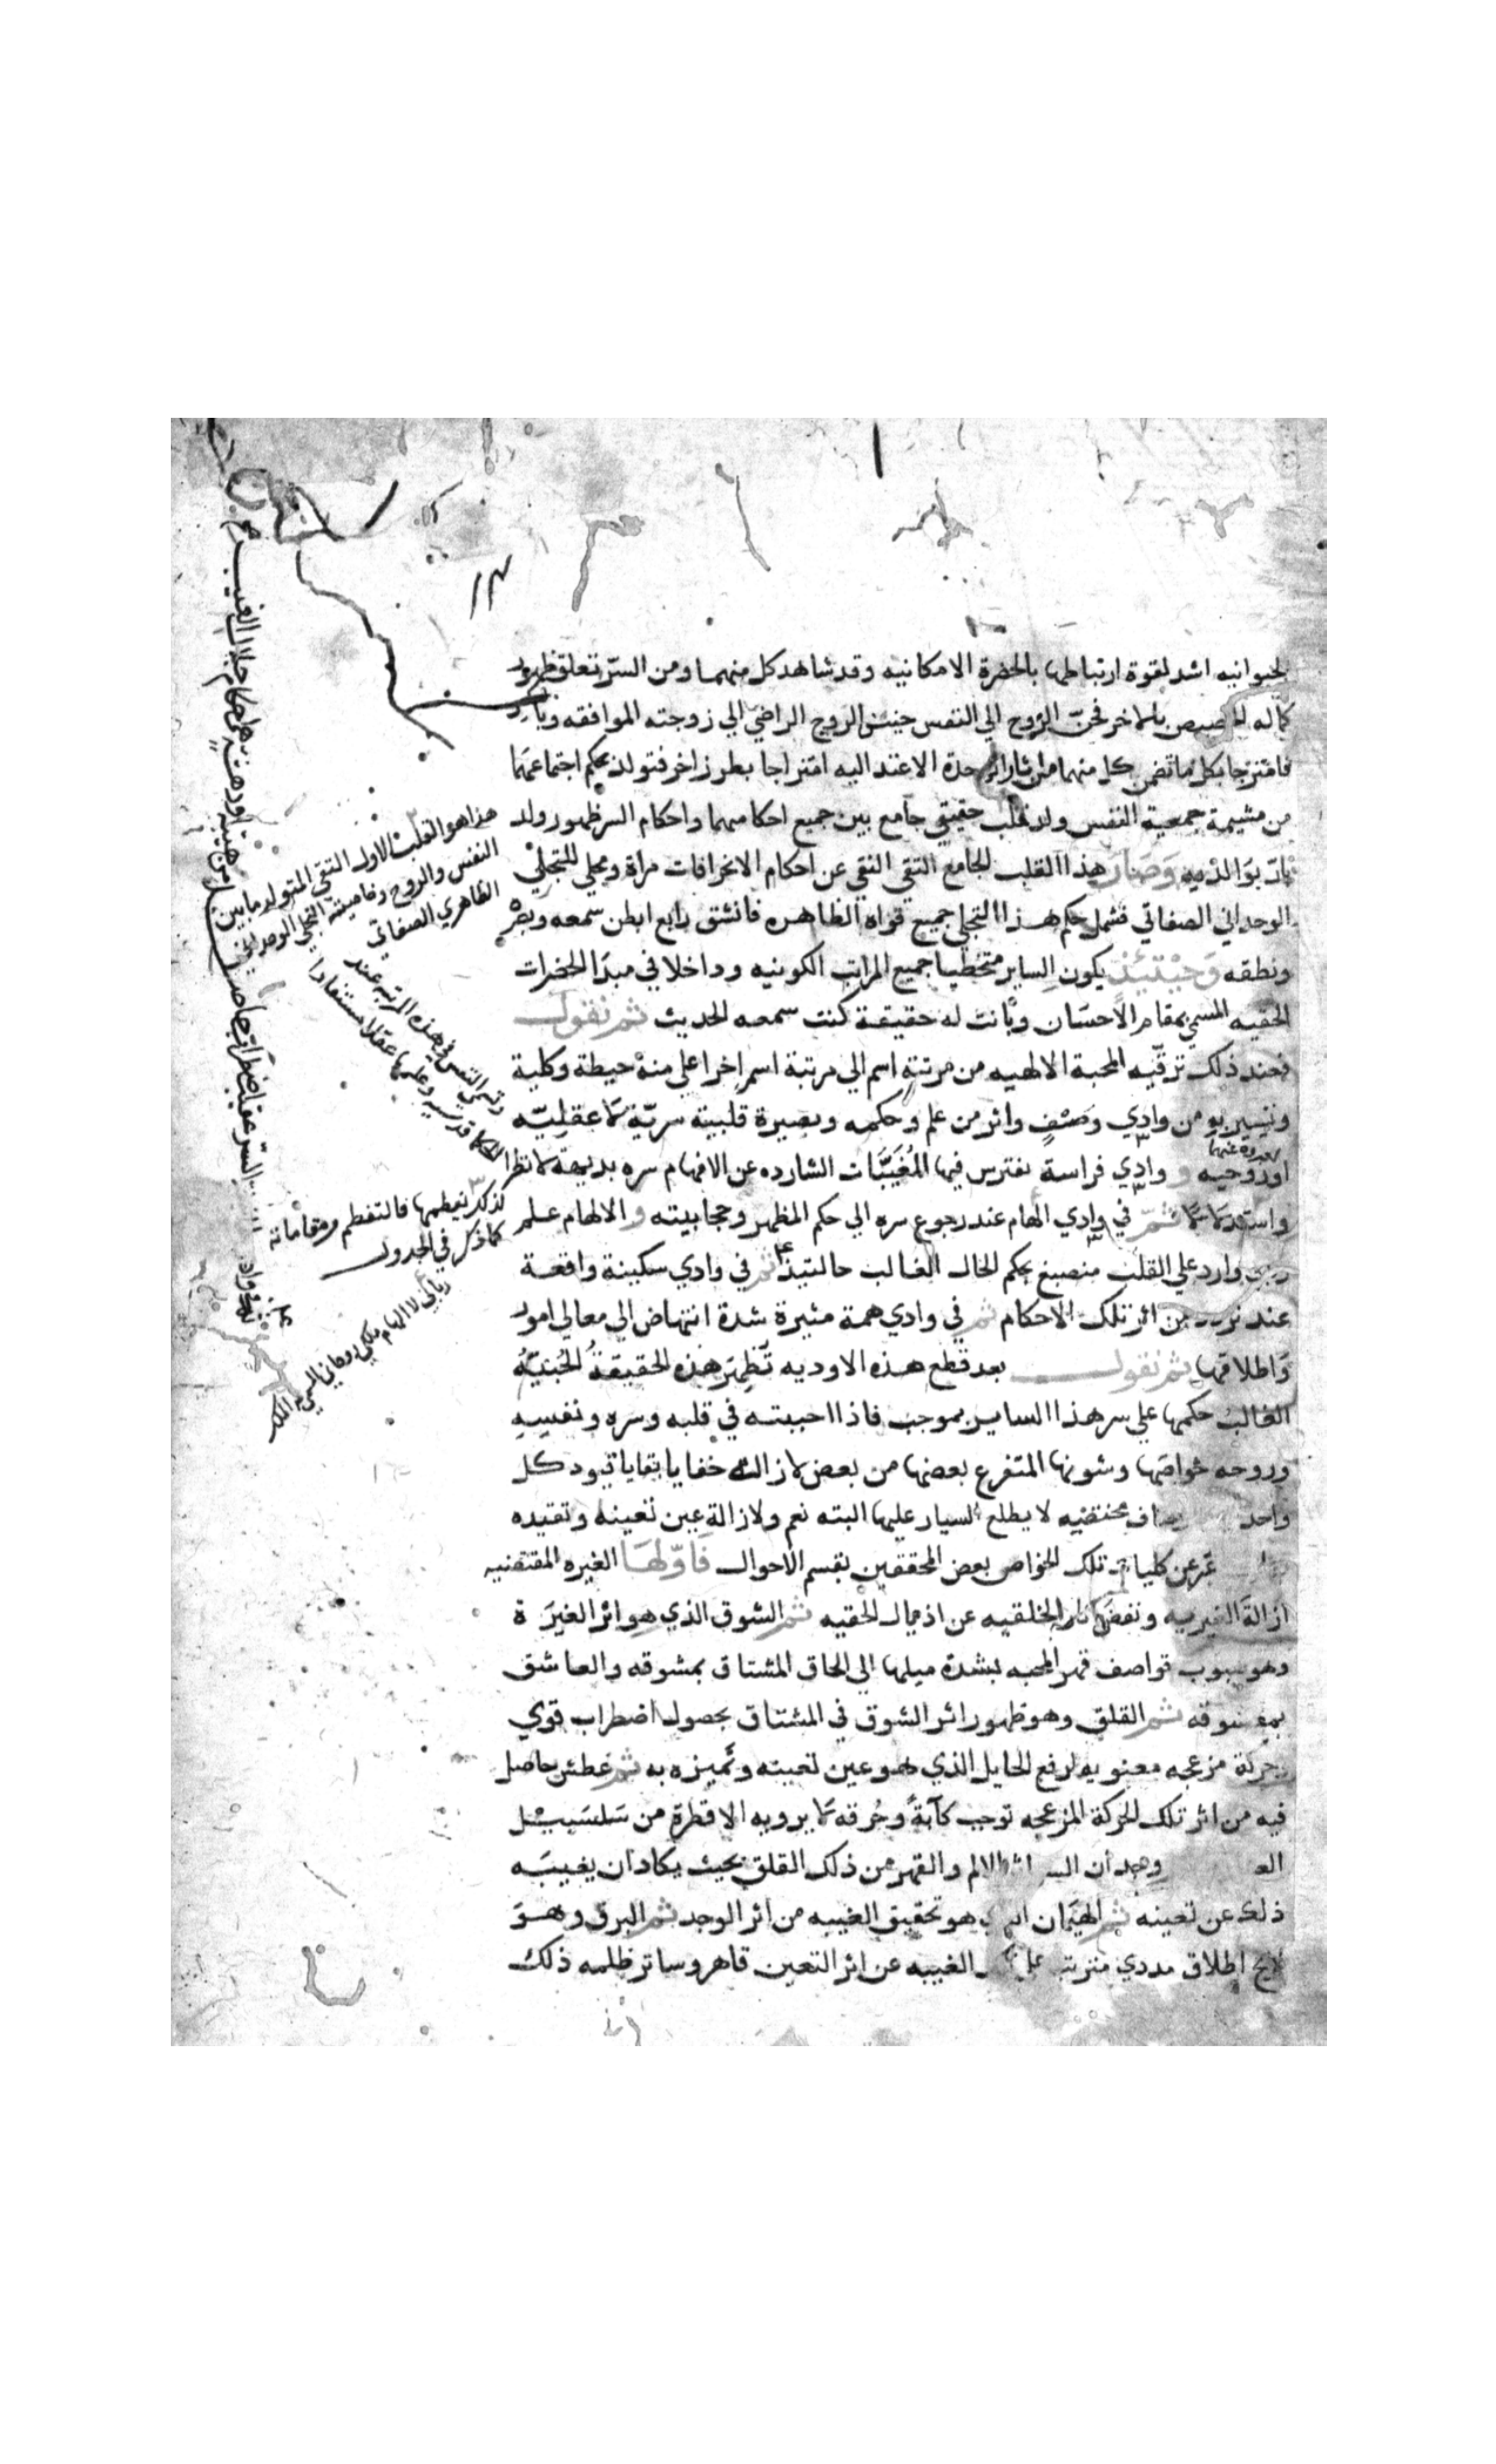 الحيوانيه اشد لقوة ارتباطها بالحضرة الامكانيه وقد شاهد كل منهما ومن السرّ تعلق ظهور
كماله الخصيص بالاخر فحنّ الروح الي النفس حنين الزوج الراضي الي زوجته الموافقه
فامتزجا بكل ما تضمن كل منهما من اثار وحدة الاعتداليه امتزاجا بطرز اخر فتولد بحكم اجتماعهما
من مشيمة جمعية النفس ولد قلب حقيقي جامع بين جميع احكامهما واحكام السر ظهور ولد
بارّ بوالديه وصار هذا القلب الجامع التقي النقي عن احكام الانحرافات مراة ومجلي للتجلي
الوحداني الصفاتي فشمل حكم هذا التجلي جميع قواه الظاهره فانشق رابع ابطن سمعه وبصره
ونطقه وحينئذ يكون الساير متخطيا جميع المراتب الكونيه وداخلا في مبدا الحضرات
الحقيه المسمي بمقام الاحسان وبانت له حقيقة كنت سمعه الحديث ثم نقول
فعند ذلك ترقيه المحبة الالهيه من مرتبة اسم الي مرتبة اسم اخر اعلي منه حيطة وكلية
وتسير به من وادي وصف واثر من علم وحكمه وبصيرة قلبية سريّة لا عقليّه
او روحيه و وادي فراسة تفترس فيها المُغَيَّبات الشارده عن الافهام سره بديهة لا نظرا
واستدلالا ثم في وادي الهام عند رجوع سره الي حكم المظهر وحجابيته والالهام علم
ربي وارد علي القلب منصبغ بحكم الحال الغالب حالتيذ ثم في وادي سكينة واقعة
عند من اثر تلك الاحكام ثم في وادي همة مثيرة شدة انتهاض الي معالي امور
واطلاقها ثم نقول بعد قطع هذه الاوديه تظهر هذه الحقيقة الحُبّيّة
الغالب حكمها علي سر هذا الساير بموجب فاذا احببته في قلبه وسره ونفسه
وروحه خواصها وشونها المتفرع بعضها من بعض لازالة خفايا بقايا قيود كل
واحد مختفيه لا يطلع السيار عليها البته نعم ولازالة عين تعينه وتقيده
عبر عن كليات تلك الخواص بعض المحققين بقسم الاحوال فاوّلها الغيره المقتضيه
ازالة الغيريه ونفض الخلقيه عن اذيال الحقيه ثم الشوق الذي هو اثر الغيرة
وهو هبوب قواصف قهر المحبه بشدة ميلها الي الحاق المشتاق بمشوقه والعاشق
بمعشوقه ثم القلق وهو ظهور اثر الشوق في المشتاق بحصول اضطراب قوي
وحركة مزعجه معنويه لرفع الحايل الذي هو عين تعينه وتميزه به ثم عطش حاصل
فيه من اثر تلك الحركة المزعجه توجب كآبةً وحُرقه لا يرويه الا قطرة من سَلسَبيل
وجدان الالم والقهر من ذلك القلق بحيث يكاد ان يغيبَه
ذلك عن تعينه ثم الهيمان هو تحقيق الغيبه من اثر الوجد ثم البرق وهو
لايح اطلاق مددي مترتب الغيبه عن اثر التعين قاهر وساتر ظلمه ذلك
هذا هو القلب الاول التقي المتولد ما بين
النفس والروح وخاصيته التجلي الوحداني
الظاهري الصفاتي
كذلك بفطمها فالتفطم ومقاماته
كما ذكر في الجدول